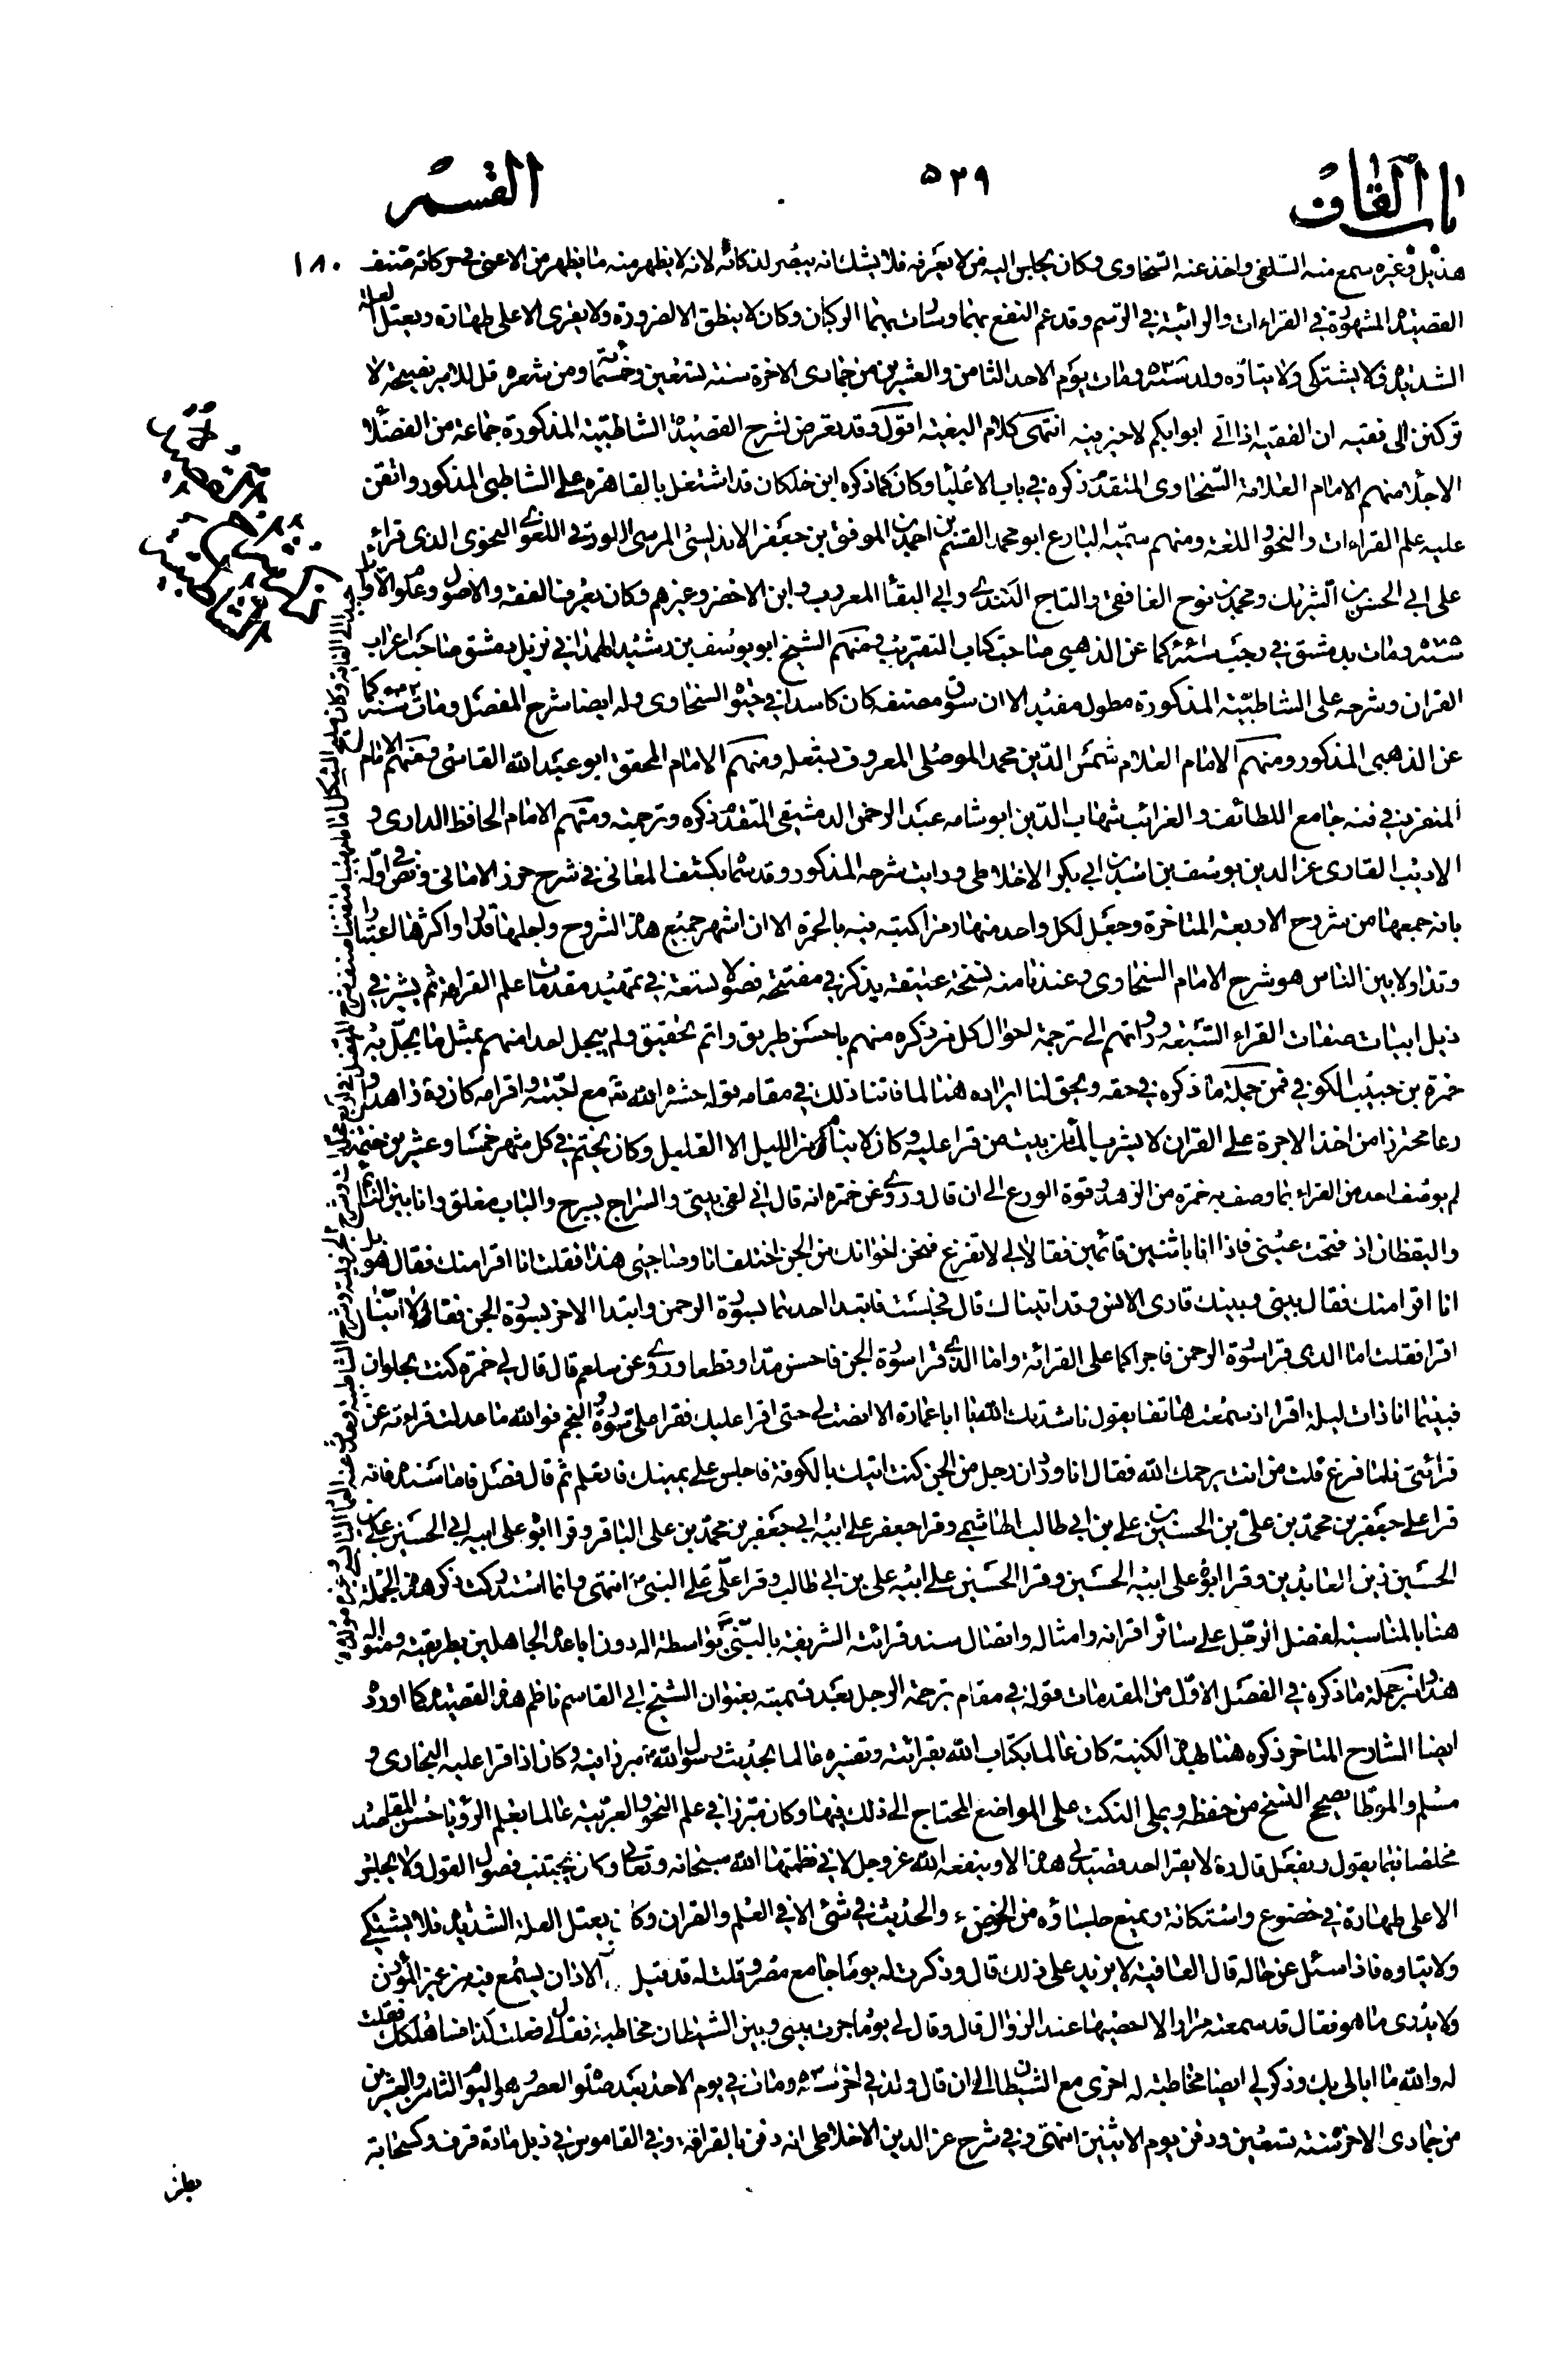 باب القاف
٥٢٩
القسم
١٨٠
هذيل وغيره سمع منه السلفى واخذ عنه السخاوى وكان يجلس اليه من لا يعرفه فلا يشك انه يبصر لذكائه لانه لا يظهر منه ما يظهر من الاعمى فى حركاته صنف
القصيدة المشهورة فى القراءات والرائية فى الرسم وقد عم النفع بهما وسارت بهما الركبان وكان لا ينطق الا لضرورة ولا يقرى الا على طهارة ويعتل العلة
الشديدة فلا يشتكى ولا يتاوه ولد سنة ٥٣٨ ومات يوم الاحد الثامن والعشرين من جمادى الاخرة سنة تسعين وخمسمائة ومن شعره قل للامير نصيحة لا
تركنن الى فقيه ان الفقيه اذا اتى ابوابكم لاخير فيه انتهى كلام البغية اقول وقد تعرض لشرح القصيدة الشاطبية المذكورة جماعة من الفضلاء
الاجلاء منهم الامام العلامة السخاوى المتقدم ذكره فى باب الاعليا وكان كما ذكره ابن خلكان قد اشتغل بالقاهرة على الشاطبى المذكور واتقن
عليه علم القراءات والنحو واللغة ومنهم سميه البارع ابو محمد القسم بن احمد بن الموفق بن جعفر الاندلسى المرسى اللورقى اللغوى النحوى الذى قراء
على ابى الحسن بن الشريك ومحمد بن نوح الغافقى والتاج الكندى وابى البقاء المعروف وابن الاخضر وغيرهم وكان يعرف الفقه والاصول وعلوم الاوايل
ومات بدمشق فى رجب كما عن الذهبى صاحب كتاب التقريب ومنهم الشيخ ابو يوسف بن رشيد الهمدانى نزيل دمشق صاحب اعراب
القران وشرحه على الشاطبية المذكورة مطول مفيد الا ان سوق مصنفه كان كاسدا فى جنب السخاوى وله ايضا شرح المفصل ومات كما
عن الذهبى المذكور ومنهم الامام العلام شمس الدين محمد الموصلى المعروف بشعله ومنهم الامام المحقق ابو عبد الله الفاسى ومنهم الامام
المنفرد فى فنه جامع اللطائف والغرائب شهاب الدين ابو شامه عبد الرحمن الدمشقى المتقدم ذكره وترجمته ومنهم الامام الحافظ الدارى و
الاديب القارى عز الدين يوسف بن اسد بن ابى بكر الاخلاطى ورايت شرحه المذكور وقد سماه بكشف المعانى فى شرح حرز الامانى ونص فى اوله
بانه جمعها من شروح الاربعة المتاخرة وجعل لكل واحد منها رمزا كتبه فيه بالحمرة الا ان اشهر جميع هذه الشروح واجلها قدرا واكثرها اعتبارا
وتداولا بين الناس هو شرح الامام السخاوى وعندنا منه نسخة عتيقة يذكر فى مفتتحه فصولا تسعة فى تمهيد مقدمات علم القراءة ثم يشير فى
ذيل ابيات صفات القراء السبعة ورواتهم الى ترجمة احوال كل من ذكره منهم باحسن طريق واتم تحقيق ولم يبجل احدا منهم بمثل ما يبجل به
حمزة بن حبيب الكوفى فمن جملة ما ذكره فى حقه ويحق لنا ايراده هنا لما فاتنا ذلك فى مقامه قوله حشره الله مع احبته واقرامه كان زاهدا
ورعا محترزا من اخذ الاجرة على القران لا يشرب الماء من بيت من قرا عليه وكان لا ينام من الليل الا القليل وكان يختم فى كل شهر خمسا وعشرين ختمة
لم يوصف احد من القراء بما وصف به حمزة من الزهد وقوة الورع الى ان قال وروى عن حمزه انه قال انى لفى بيتى والسراج يسرج والباب مغلق وانا بين النائم
واليقظان اذ فتحت عينى فاذا انا باثنين قائمين فقالا لى لا تفزع فنحن اخوانك من الجن اختلف انا وصاحبى هذا فقلت انا اقرا منك فقال هو بل
انا اقرا منك فقال بينى وبينك قارى الانس وقد اتيناك قال فجلست فابتدا احدهما بسورة الرحمن وابتدا الاخر بسورة الجن فقالا اينا
اقرا فقلت اما الذى قرا سورة الرحمن فاجراكما على القرائة واما الذى قرا سورة الجن فاحسن مدا وقطعا وروى عن سليم قال قال لى حمزة كنت بحلوان
فبينما انا ذات ليلة اقرا اذ سمعت هاتفا يقول ناشدتك الله يا ابا عمارة الا انصت لى حتى اقرا عليك فقرا على سورة النجم فوالله ما عدلت قراءته عن
قرائتى فلما فرغ قلت من انت يرحمك الله فقال انا وردان رجل من الجن كنت اتيك بالكوفة فاجلس على يمينك فاتعلم ثم قال فصل فاما سنده فانه
قرا على جعفر بن محمد بن على بن الحسين بن على بن ابى طالب الهاشمى وقرا جعفر على ابيه ابى جعفر بن محمد بن على الباقر وقرا ابوه على ابيه ابى الحسين على بن
الحسين زين العابدين وقرا ابوه على ابيه الحسين وقرا الحسين على ابيه على بن ابى طالب وقرا على على النبى انتهى وانما استدركت ذكر هذه الجملة
هنا بالمناسبة لفضل الرجل على سائر اقرانه وامثاله واتصال سند قرائته الشريفة بالنبى بواسطة اله دون اباعد الجاهلين بطريقته ومنواله
هذا ومن جملة ما ذكره فى الفصل الاول من المقدمات قوله فى مقام ترجمة الرجل بعد تسميته بعنوان الشيخ ابى القاسم ناظم هذه القصيدة كما اورد
ايضا الشارح المتاخر ذكره هنا بهذه الكنية كان عالما بكتاب الله بقرائته وتفسيره عالما بحديث رسول الله مبرزا فيه وكان اذا قرا عليه البخارى و
مسلم والموطا يصحح النسخ من حفظه ويملى النكت على المواضع المحتاج الى ذلك فيها وكان مبرزا فى علم النحو والعربية عالما بعلم الرؤيا حسن المقاصد
مخلصا فيما يقول ويفعل قال ره لا يقرا احد قصيدتى هذه الا وينفعه الله عز وجل لانى نظمتها لله سبحانه وتعالى وكان يجتنب فضول القول ولا يجلس
الا على طهارة فى خضوع واستكانة ويمنع جلساؤه من الخوض والحديث فى شئ الا فى العلم والقران وكان يعتل العلة الشديدة فلا يشتكى
ولا يتاوه فاذا سئل عن حاله قال العافية لا يزيد على ذلك قال وذكرت له يوما جامع مصر وقلت له قد قيل الاذان يسمع فيه من غير المؤذن
ولا يدرى ما هو فقال قد سمعته مرارا لا احصيها عند الزوال قال وقال لى يوما جرت بينى وبين الشيطان مخاطبة فقال لى فعلت كذا فساهلكك فقلت
له والله ما ابالى بك وذكر لى ايضا مخاطبة له اخرى مع الشيطان الى ان قال ولد فى اخر ومات فى يوم الاحد بعد صلوة العصر هو اليوم الثامن والعشرين
من جمادى الاخر سنة تسعين ودفن يوم الاثنين انتهى وفى شرح عز الدين الاخلاطى انه دفن بالقرافة وفى القاموس فى ذيل مادة قرف وكسحابة
بطن